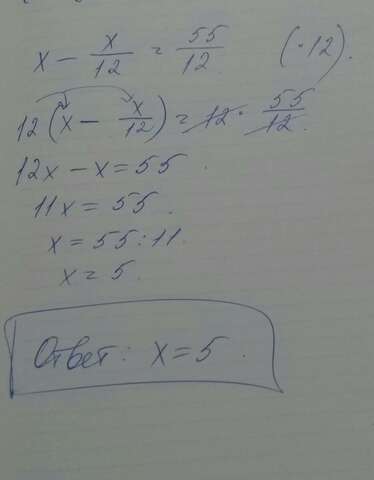 x - x/12 = 55/12 (·12).
12(x - x/12) = 12 · 55/12.
12x - x = 55.
11x = 55.
x = 55:11.
x = 5.
Ответ: x = 5.